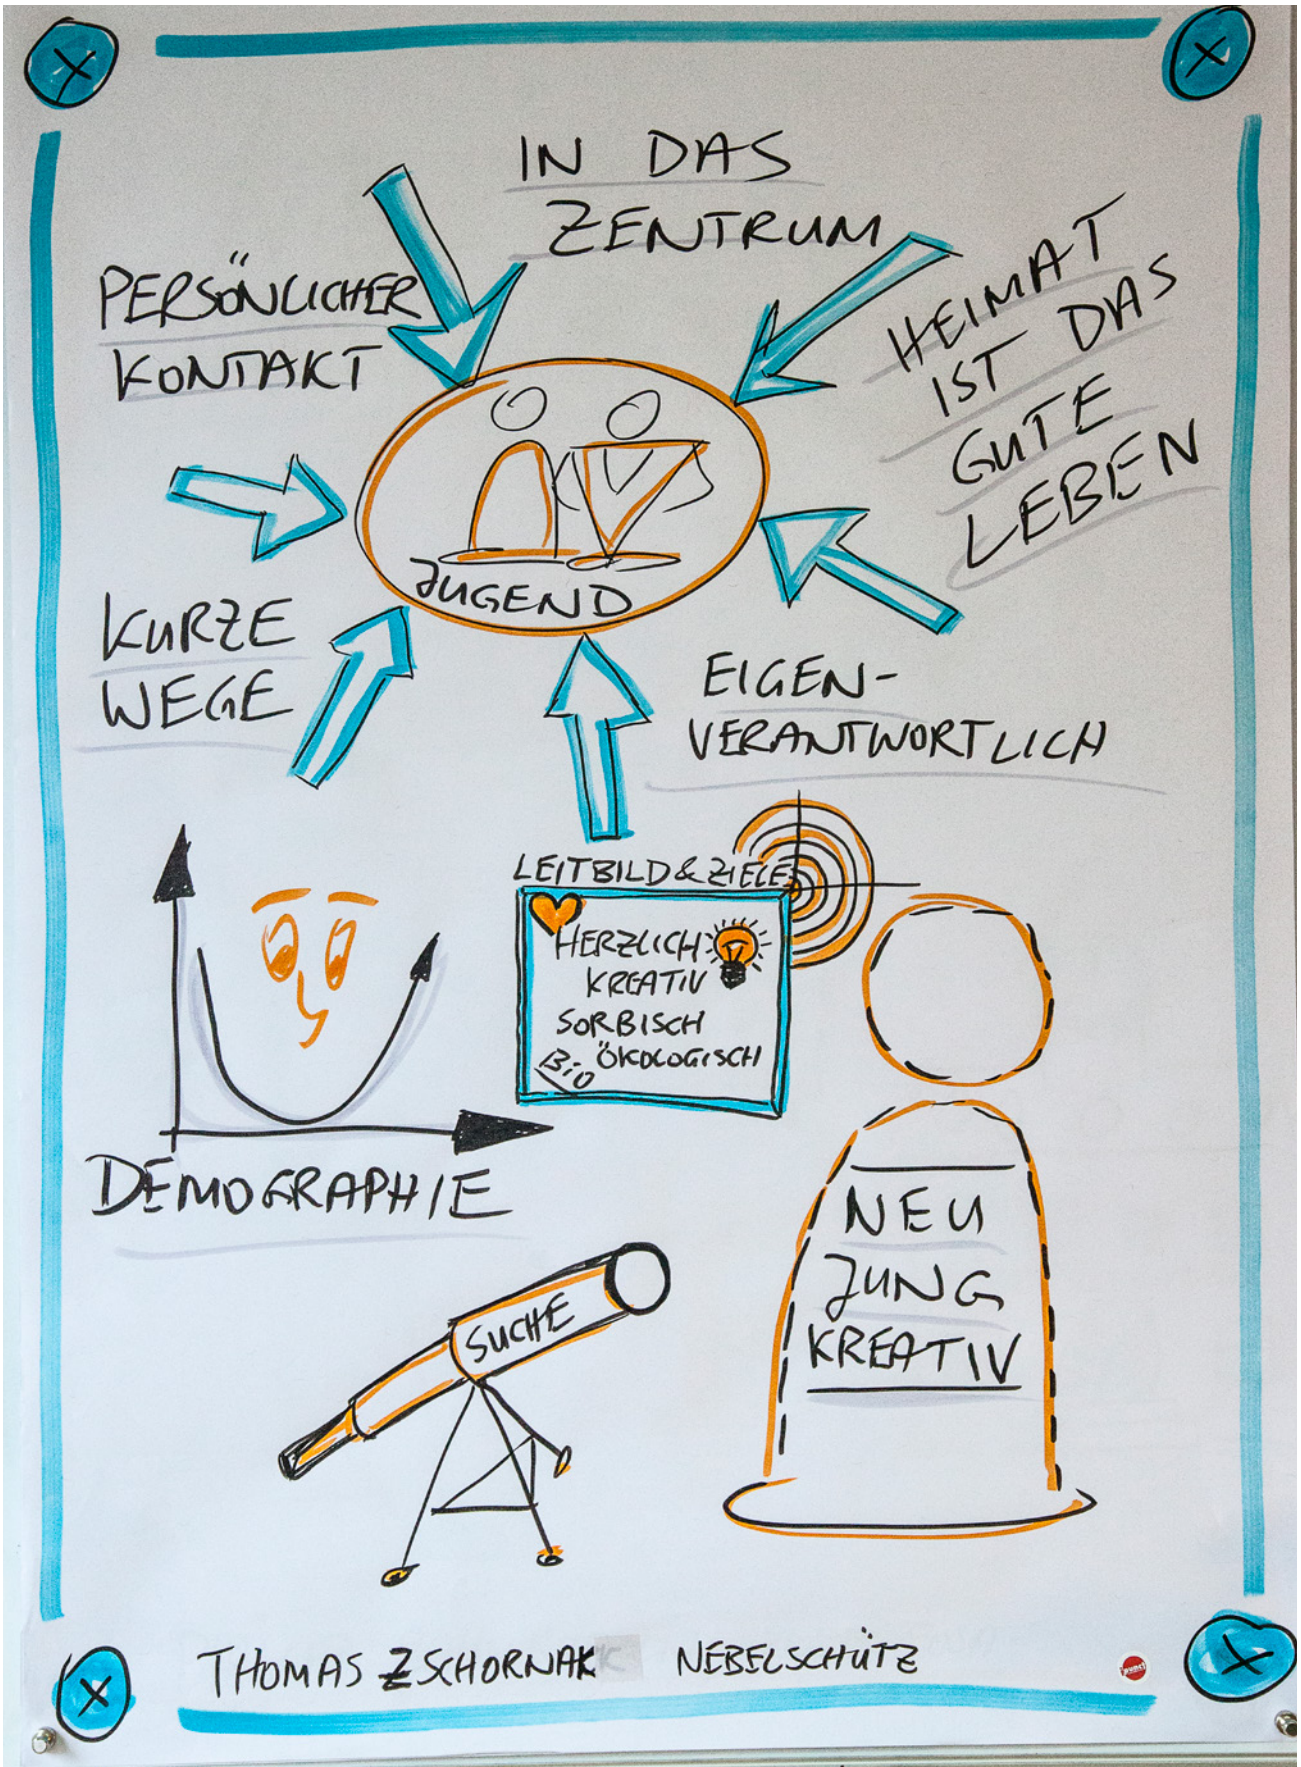 IN DAS
ZENTRUM
PERSÖNLICHER
KONTAKT
HEIMAT
IST DAS
GUTE
LEBEN
JUGEND
KURZE
WEGE
EIGEN-
VERANTWORTLICH
LEITBILD & ZIELE
HERZLICH
KREATIV
SORBISCH
ÖKOLOGISCH
BiO
DEMOGRAPHIE
NEU
JUNG
KREATIV
SUCHE
THOMAS ZSCHORNAK NEBELSCHÜTZ